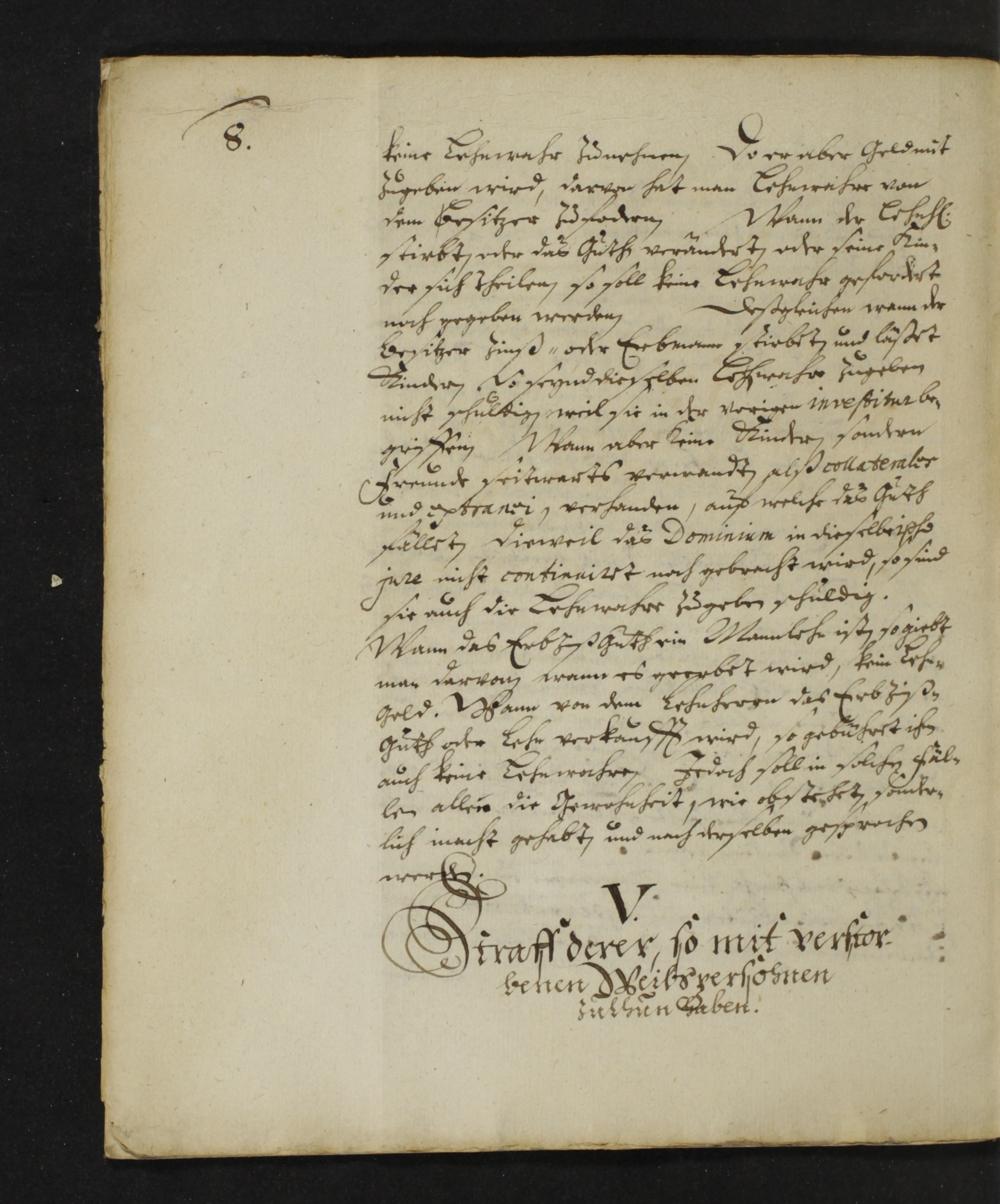 8.
keine Lehnwahr zunehmen, Do er aber Geld mit
zugeben wird, darvon hat man Lehnwahre von
dem Besitzer zufodern, Wann der Lehnh:
stirbt, oder das Guth verändert, oder seine Kin-
der sich theilen, so soll keine Lehnwahr gefordert
noch gegeben werden, Deßgleichen wann der
Besitzer Zinß- oder Erbmann stirbet, und läßet
Kinder, So seynd dieselben Lehnwahre zugeben
nicht schuldig, weil sie in der vorigen investitur be-
griffen, Wann aber keine Kinder, sondern
Freunde seitwarts verwandt, alß collaterales
und extranei, verhanden, auf welche das Guth
fället, dieweil das Dominium in dieselbe ipso
jure nicht continuiret noch gebracht wird, so sind
sie auch die Lehnwahre zugeben schuldig.
Wann das Erbzinßguth ein Mannlehn ist, so giebt
man darvon, wann es geerbet wird, kein Lehn-
Geld. Wann von dem Lehnherrn das Erbzinß-
Guth oder Lehn verkaufft wird, so gebühret ihm
auch keine Lehnwahre, Jedoch soll in solchen Fäl-
len allen die Gewohnheit, wie obstehet, sonder-
lich in acht gehabt, und nach derselben gesprochen
werden.
V.
Straff derer, so mit verstor-
benen Weibspersohnen
zuthun haben.